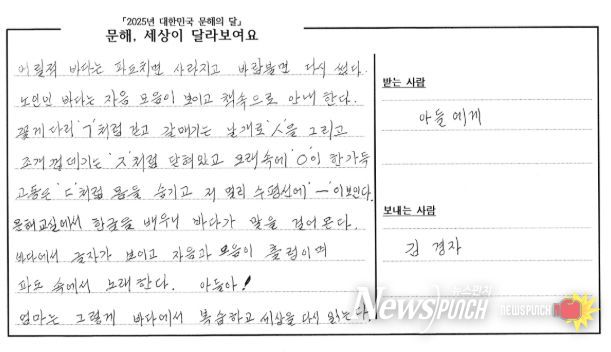 「2025년 대한민국 문해의 달」
문해, 세상이 달라보여요
어릴적 바다는 파도치면 사라지고 바람불면 다시 썼다.
노인인 바다는 자음 모음이 보이고 책속으로 안내 한다.
꽃게다리 'ㄱ'처럼 걷고 갈매기는 날개로 'ㅅ'을 그리고
조개 껍데기는 'ㅈ'처럼 닫혀있고 모래속에 'ㅇ'이 한가득
고둥은 'ㄷ'처럼 몸을 숨기고 저 멀리 수평선에 'ㅡ'이보인다.
문해교실에서 한글을 배우니 바다가 말을 걸어 온다.
바다에서 글자가 보이고 자음과 모음이 출렁이며
파도 속에서 노래한다. 아들아!
엄마는 그렇게 바다에서 복습하고 세상을 다시 읽는다.
받는 사람
아들에게
보내는 사람
김경자
뉴스펀치
NewsPunch
NEWSPUNCH